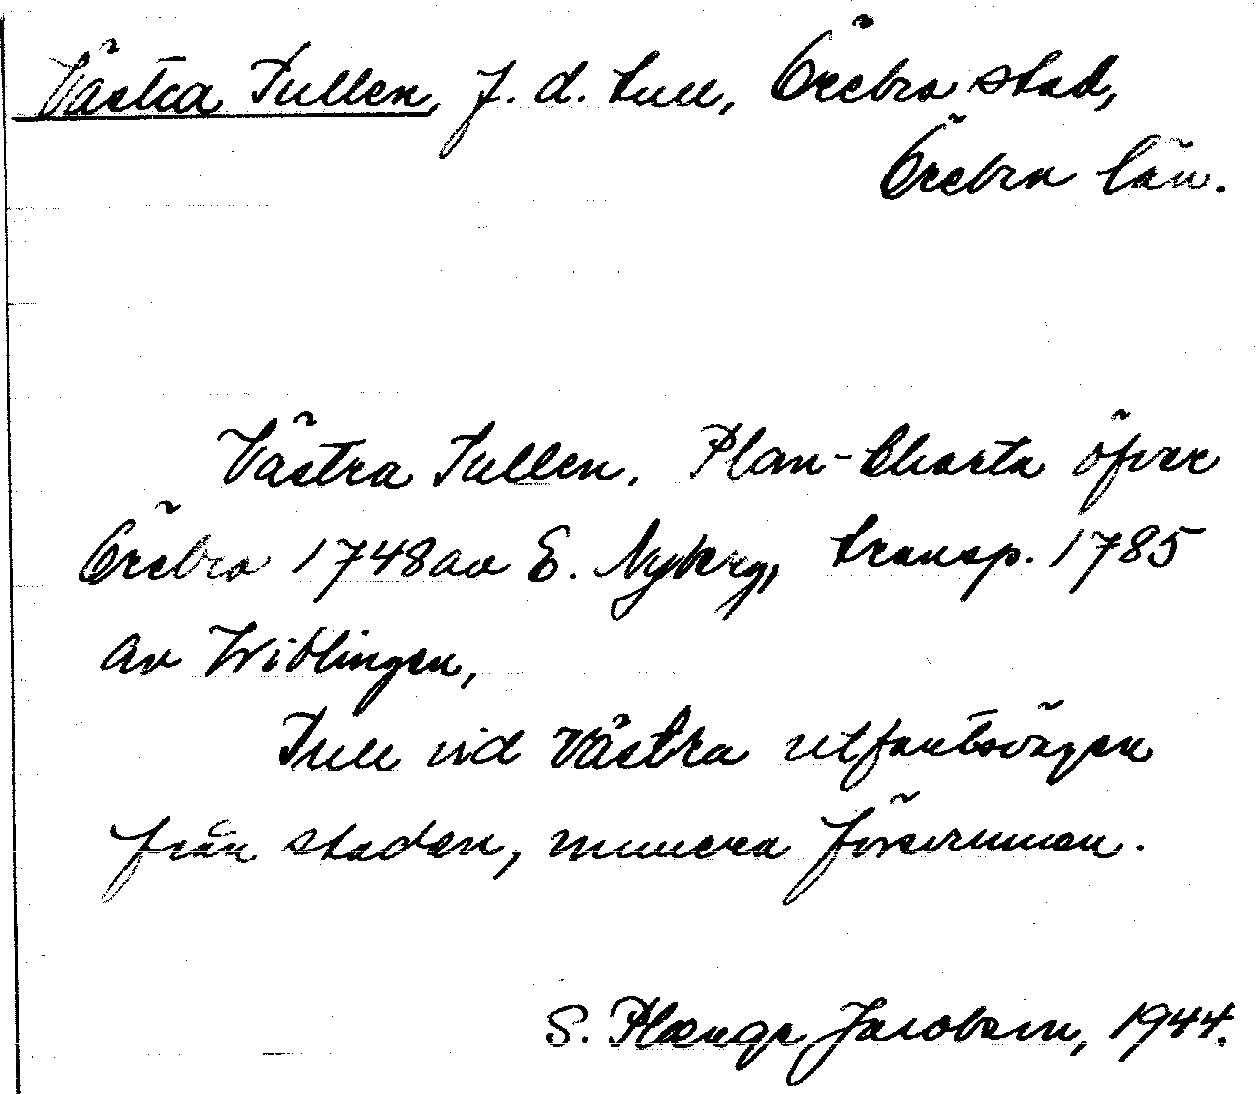 Västra Tullen, f. d. tull, Örebro stad,
Örebro län.
Västra Tullen. Plan-Charta öfver
Örebro 1748 av E. Nyberg, transp. 1785
av Wiblingen,
Tull vid västra utfartsvägen
från staden, numera försvunnen.
S. Plænge Jacobson, 1944.